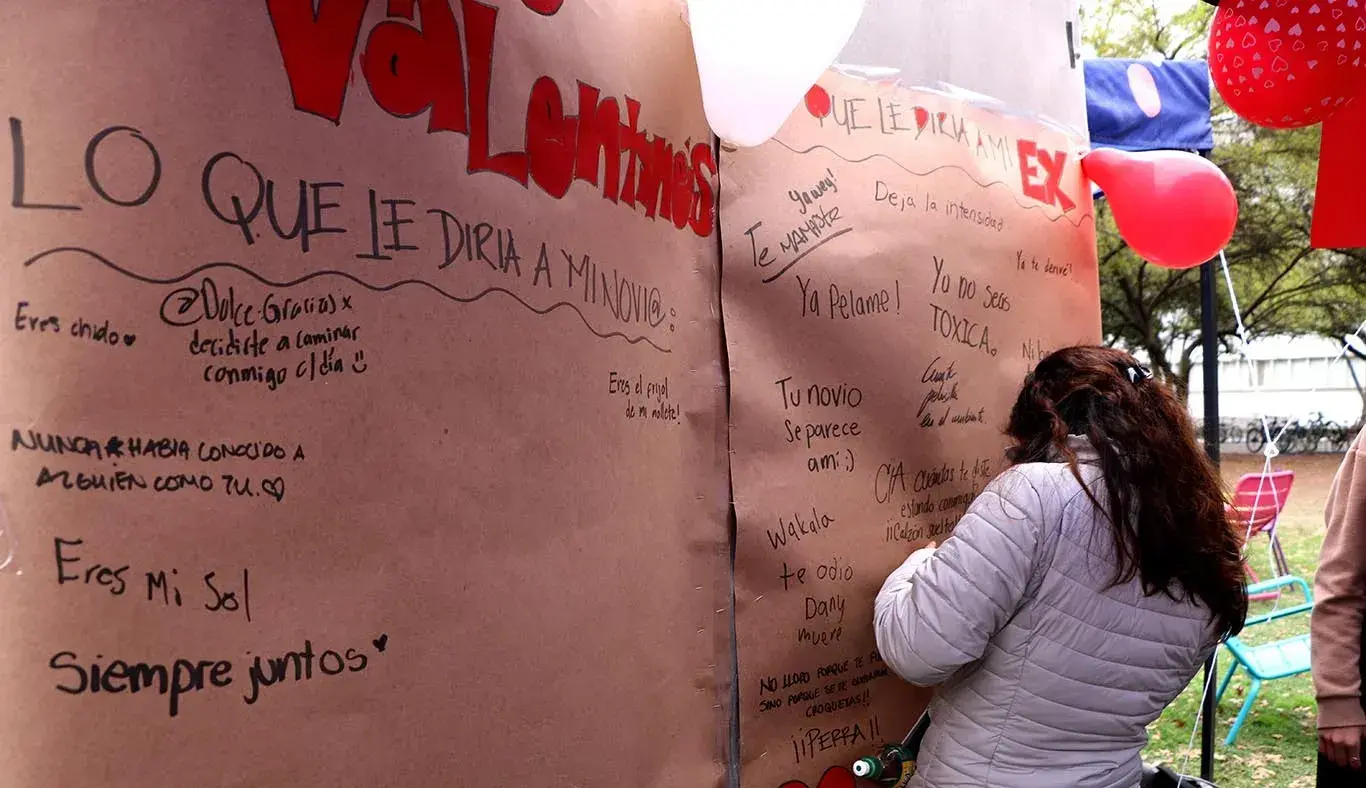 Valentine's
LO QUE LE DIRIA A MI NOVI@:
Eres chido
@Dolce.Gracias x
decidirte a caminar
conmigo c/día :)
Eres el frijol
de mi mollete!
NUNCA HABIA CONOCIDO A
ALGUIÉN COMO TU.
Eres Mi Sol
Siempre juntos
QUE LE DIRIA A MI EX
Deja la intensidad
Ya wey!
Te MAMASTE
Ya te derivé!
Ya Pelame!
Ya no seas
TOXICA.
Tu novio
se parece
a mi :)
en el
CIA cuántas te diste
estando conmigo
¡¡Calzón
Wakala
te odio
Dany
muere
NO LLORO PORQUE TE
SINO PORQUE SE TE
CROQUETAS!!
¡¡PERRA!!